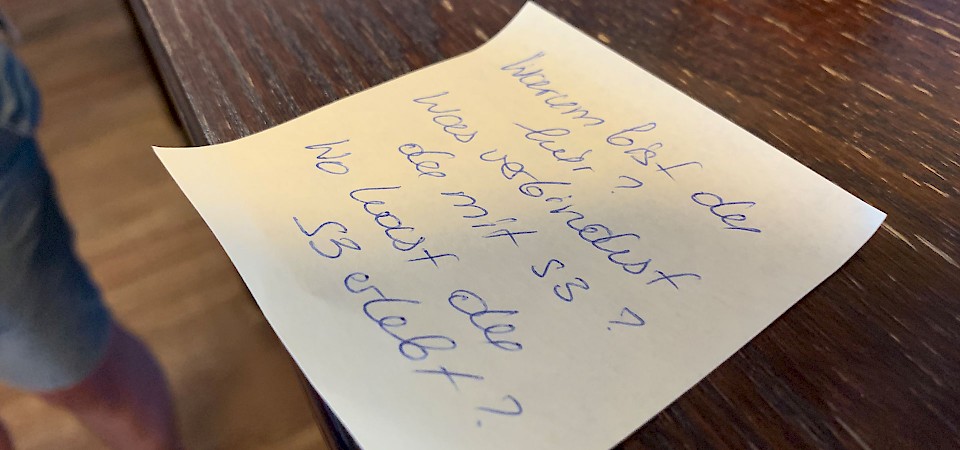 Warum bist du
hier?
Was verbindest
du mit S3?
Wo hast du
S3 erlebt?